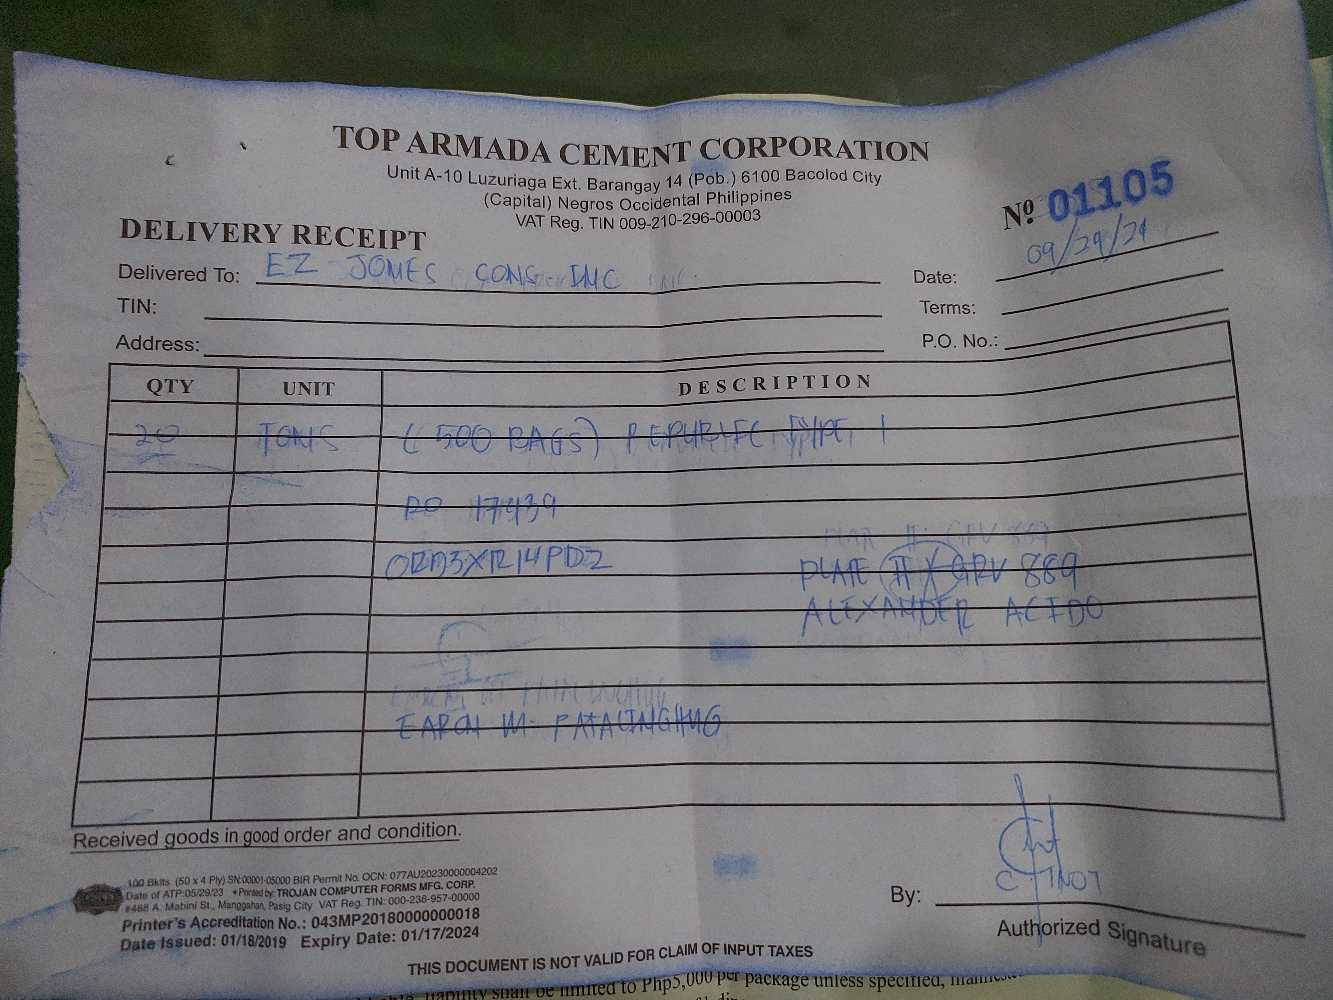 TOP ARMADA CEMENT CORPORATION
Unit A-10 Luzuriaga Ext. Barangay 14 (Pob.) 6100 Bacolod City
(Capital) Negros Occidental Philippines
VAT Reg. TIN 009-210-296-00003
Nº 01105
DELIVERY RECEIPT
Delivered To: EZ JONES CONS INC
Date: 09/29/21
TIN:
Terms:
Address:
P.O. No.:
QTY UNIT DESCRIPTION
20 TONS (500 BAGS) REPUBLIC TYPE 1
PO 17439
PLATE # GRV 889
ALEXANDER ACIDO
Received goods in good order and condition.
100 Bklts. (50 x 4 Ply) SN:00001-05000 BIR Permit No. OCN: 077AU20230000004202
Date of ATP:05/29/23 *Printed by: TROJAN COMPUTER FORMS MFG. CORP.
#468 A. Mabini St., Manggahan, Pasig City VAT Reg. TIN: 000-238-957-00000
Printer's Accreditation No.: 043MP20180000000018
Date Issued: 01/18/2019 Expiry Date: 01/17/2024
By:
Authorized Signature
THIS DOCUMENT IS NOT VALID FOR CLAIM OF INPUT TAXES
liability shall be limited to Php5,000 per package unless specified,